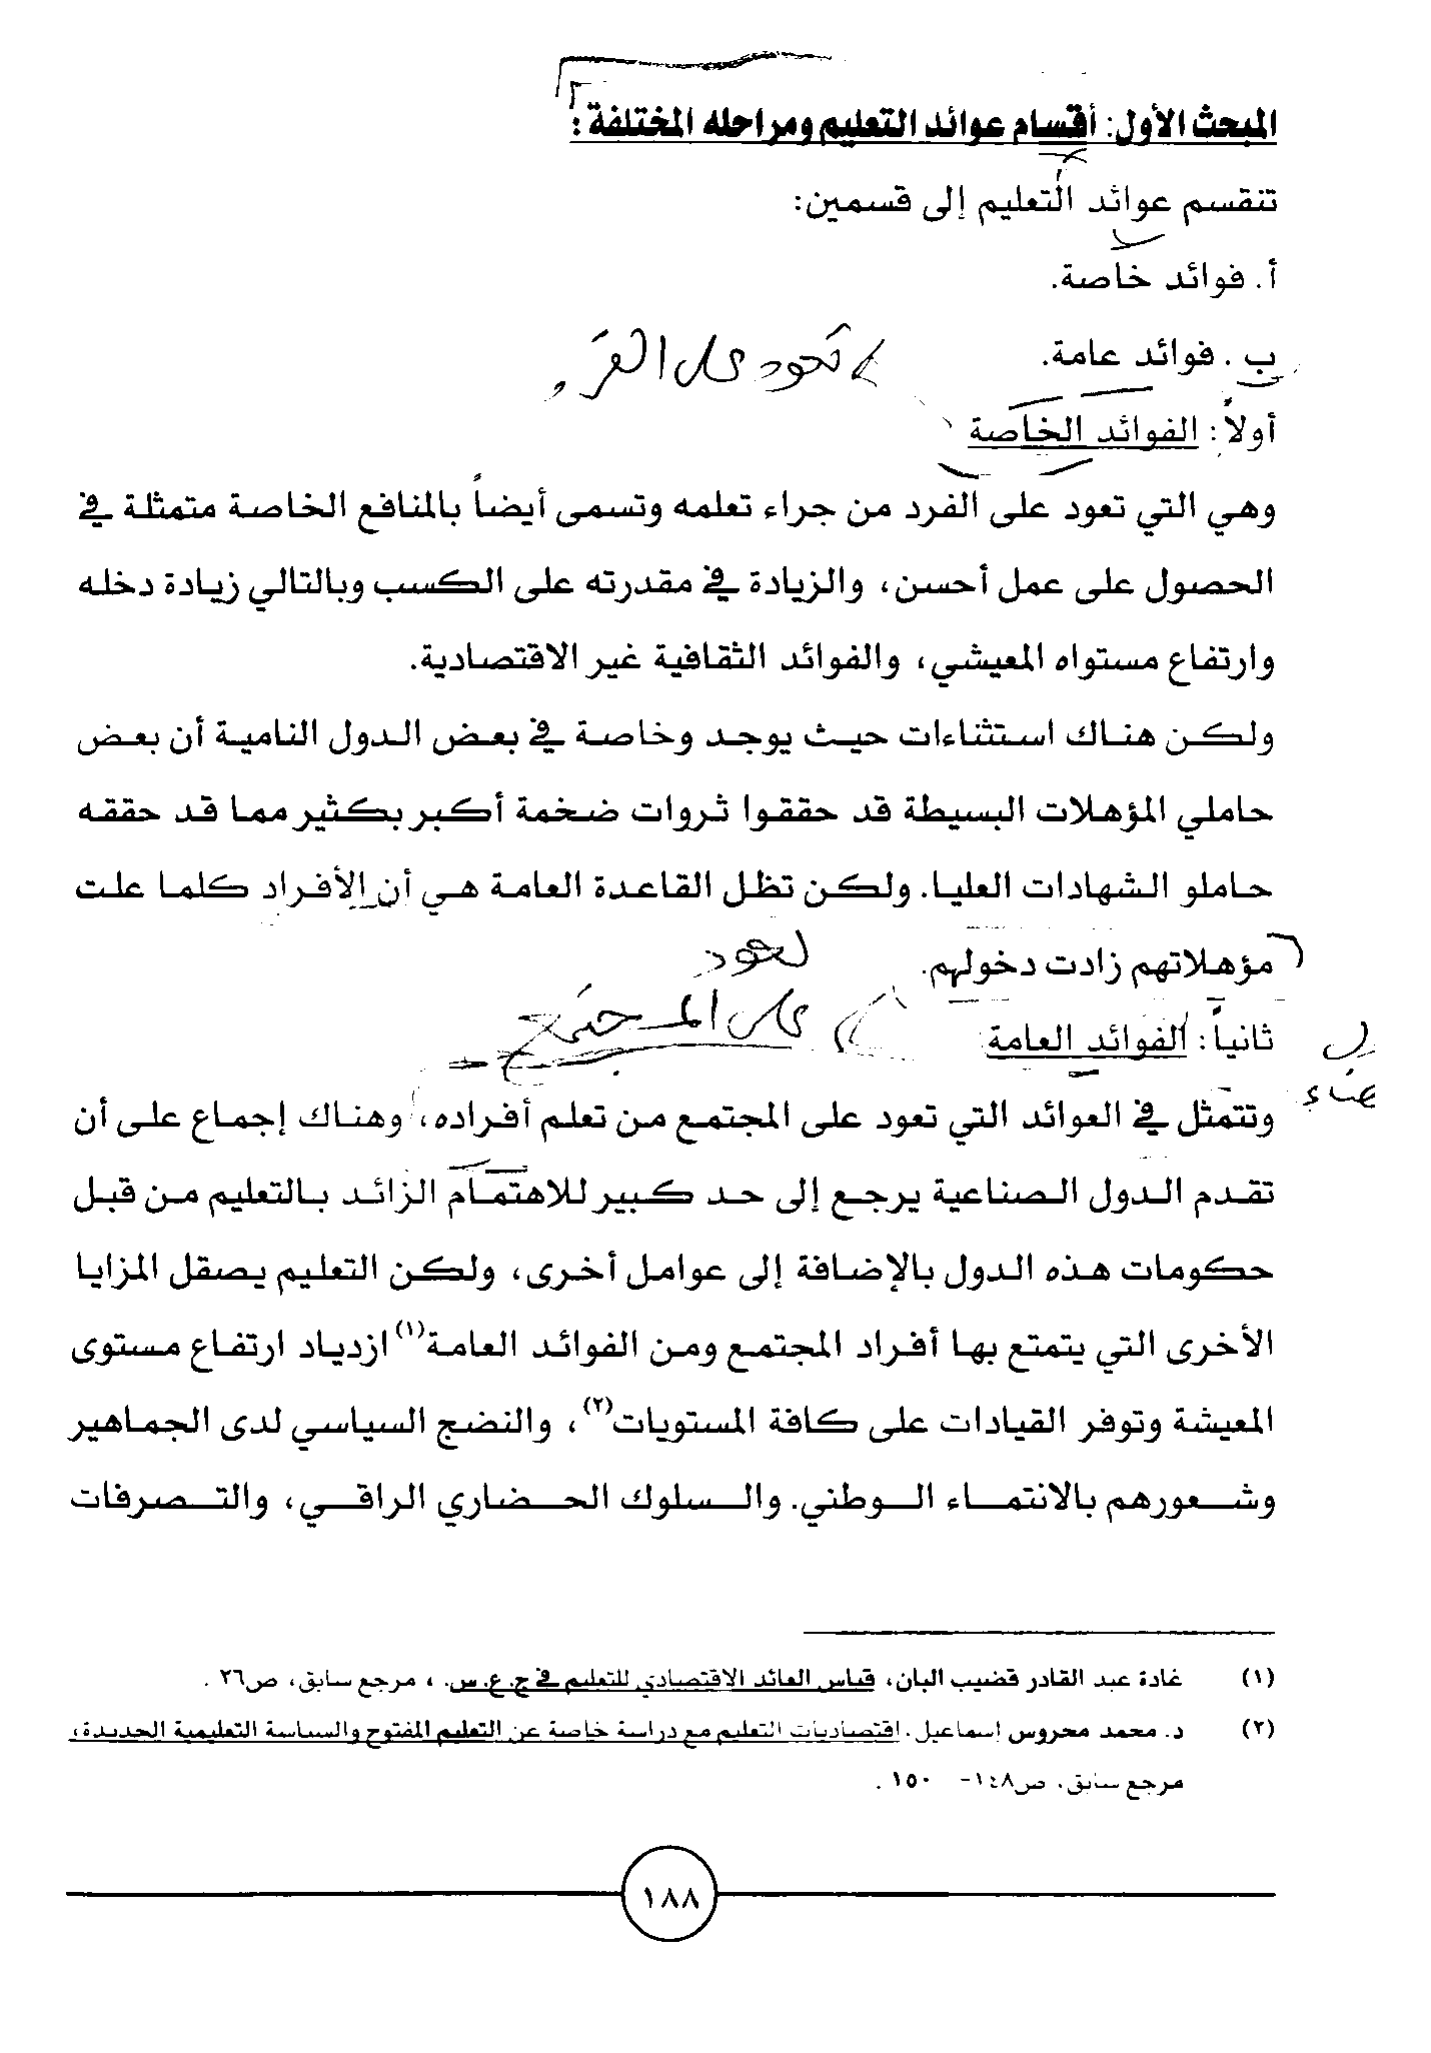 المبحث الأول: أقسام عوائد التعليم ومراحله المختلفة:
تنقسم عوائد التعليم إلى قسمين:
أ. فوائد خاصة.
ب. فوائد عامة.
تعود على الفرد
أولاً: الفوائد الخاصة
وهي التي تعود على الفرد من جراء تعلمه وتسمى أيضاً بالمنافع الخاصة متمثلة في
الحصول على عمل أحسن، والزيادة في مقدرته على الكسب وبالتالي زيادة دخله
وارتفاع مستواه المعيشي، والفوائد الثقافية غير الاقتصادية.
ولكن هناك استثناءات حيث يوجد وخاصة في بعض الدول النامية أن بعض
حاملي المؤهلات البسيطة قد حققوا ثروات ضخمة أكبر بكثير مما قد حققه
حاملو الشهادات العليا. ولكن تظل القاعدة العامة هي أن الأفراد كلما علت
مؤهلاتهم زادت دخولهم.
تعود
على المجتمع
ثانياً: الفوائد العامة
وتتمثل في العوائد التي تعود على المجتمع من تعلم أفراده، وهناك إجماع على أن
تقدم الدول الصناعية يرجع إلى حد كبير للاهتمام الزائد بالتعليم من قبل
حكومات هذه الدول بالإضافة إلى عوامل أخرى، ولكن التعليم يصقل المزايا
الأخرى التي يتمتع بها أفراد المجتمع ومن الفوائد العامة(١) ازدياد ارتفاع مستوى
المعيشة وتوفر القيادات على كافة المستويات(٢)، والنضج السياسي لدى الجماهير
وشعورهم بالانتماء الوطني. والسلوك الحضاري الراقي، والتصرفات
(١) غادة عبد القادر قضيب البان، قياس العائد الاقتصادي للتعليم في ج.ع.س.، مرجع سابق، ص٢٦.
(٢) د. محمد محروس اسماعيل، اقتصاديات التعليم مع دراسة خاصة عن التعليم المفتوح والسياسة التعليمية الجديدة،
مرجع سابق، ص١٤٨- ١٥٠.
١٨٨